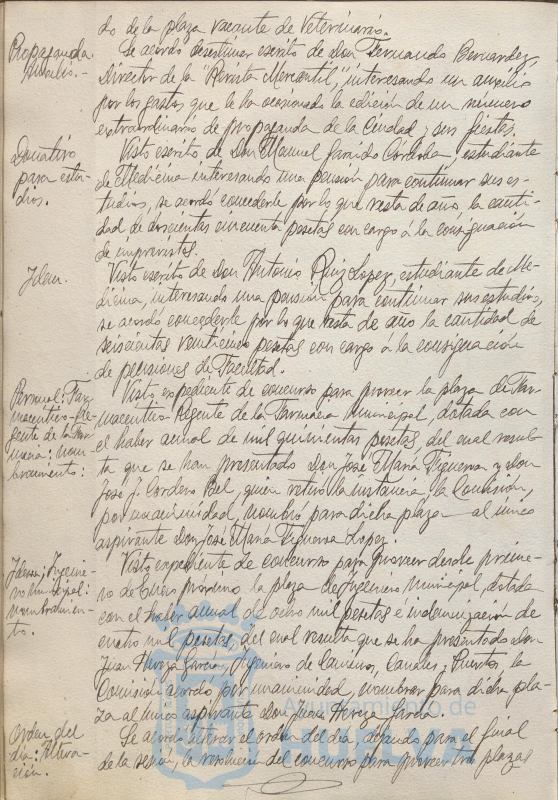 do de la plaza vacante de Veterinario.
Propaganda
Se acordó desestimar escrito de Don Fernando Bernardez,
Director de la "Revista Mercantil," interesando un auxilio
por los gastos que le ha ocasionado la edición de un número
extraordinario de propaganda de la Ciudad y sus fiestas.
Donativo
para estu-
dios.
Visto escrito de Don Manuel Garrido Córdoba, estudiante
de Medicina interesando una pensión para continuar sus es-
tudios, se acordó concederle por lo que resta de año, la canti-
dad de doscientas cincuenta pesetas con cargo á la consignación
de imprevistos.
Idem.
Visto escrito de Don Antonio Ruiz Lopez, estudiante de Me-
dicina, interesando una pensión para continuar sus estudios,
se acordó concederle por lo que resta de año la cantidad de
seiscientas veinticinco pesetas con cargo á la consignación
de pensiones de Facultad.
Personal: Far-
maceutico Re-
gente de la Far-
macia: nom-
bramiento:
Visto expediente de concurso para proveer la plaza de Far-
maceutico Regente de la Farmacia Municipal, dotada con
el haber anual de mil quinientas pesetas, del cual resul-
ta que se han presentado Don José Maria Figueroa y Don
José J. Cordero Bel, quien retiró la instancia, la Comisión,
por unanimidad, nombró para dicha plaza al unico
aspirante Don José Maria Figueroa Lopez.
Idem; Ingenie-
ro Municipal:
nombramien-
to.
Visto expediente de concurso para proveer desde prime-
ro de Enero próximo la plaza de Ingeniero Municipal, dotada
con el haber anual de ocho mil pesetas é indemnización de
cuatro mil pesetas, del cual resulta que se ha presentado Don
Juan Hereza Garcia, Ingeniero de Caminos, Canales y Puertos, la
Comisión acordó por unanimidad, nombrar para dicha pla-
za al unico aspirante Don Juan Hereza Garcia.
Orden del
dia: Altera-
ción.
Se acordó alterar el orden del día, dejando para el final
de la sesión, la resolución del concurso para proveer tres plazas
Ayuntamiento de
HUELVA